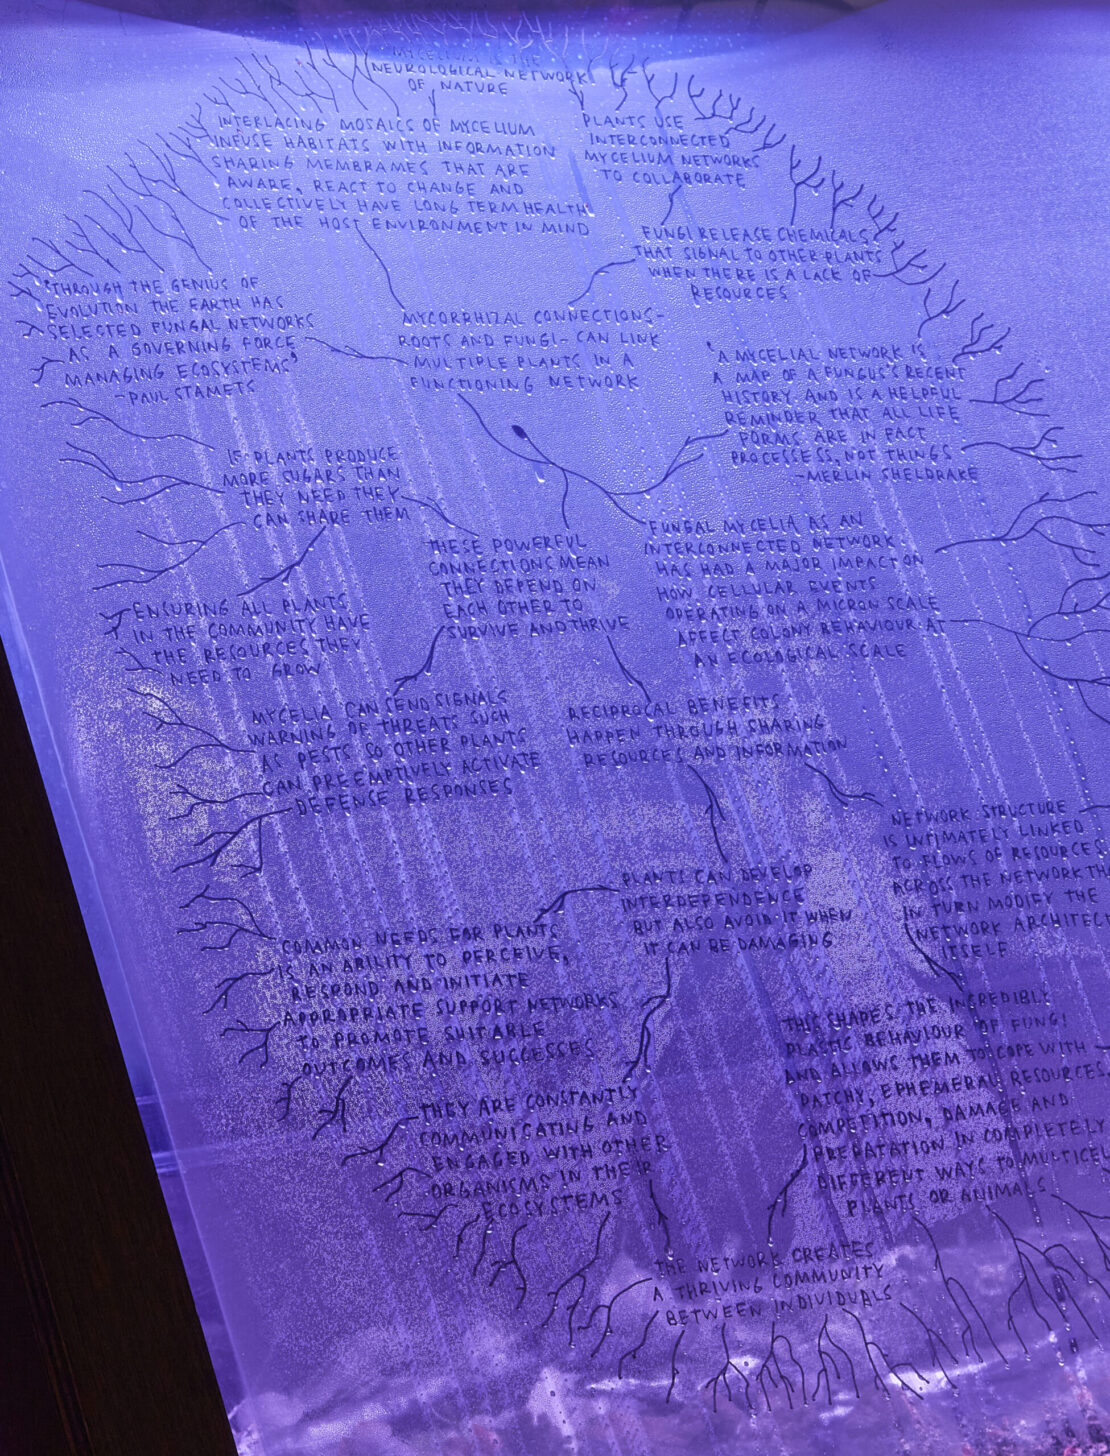 MYCELIUM IS THE
NEUROLOGICAL NETWORK
OF NATURE
INTERLACING MOSAICS OF MYCELIUM
INFUSE HABITATS WITH INFORMATION
SHARING MEMBRAMES THAT ARE
AWARE, REACT TO CHANGE AND
COLLECTIVELY HAVE LONG TERM HEALTH
OF THE HOST ENVIRONMENT IN MIND
PLANTS USE
INTERCONNECTED
MYCELIUM NETWORKS
TO COLLABORATE
FUNGI RELEASE CHEMICALS
THAT SIGNAL TO OTHER PLANTS
WHEN THERE IS A LACK OF
RESOURCES
'THROUGH THE GENIUS OF
EVOLUTION THE EARTH HAS
SELECTED FUNGAL NETWORKS
AS A GOVERNING FORCE
MANAGING ECOSYSTEMS'
-PAUL STAMETS
MYCORRHIZAL CONNECTIONS-
ROOTS AND FUNGI- CAN LINK
MULTIPLE PLANTS IN A
FUNCTIONING NETWORK
'A MYCELIAL NETWORK IS
A MAP OF A FUNGUS'S RECENT
HISTORY AND IS A HELPFUL
REMINDER THAT ALL LIFE
FORMS ARE IN FACT
PROCESSESS, NOT THINGS
-MERLIN SHELDRAKE
IF PLANTS PRODUCE
MORE SUGARS THAN
THEY NEED THEY
CAN SHARE THEM
THESE POWERFUL
CONNECTIONS MEAN
THEY DEPEND ON
EACH OTHER TO
SURVIVE AND THRIVE
FUNGAL MYCELIA AS AN
INTERCONNECTED NETWORK
HAS HAD A MAJOR IMPACT ON
HOW CELLULAR EVENTS
OPERATING ON A MICRON SCALE
AFFECT COLONY BEHAVIOUR AT
AN ECOLOGICAL SCALE
ENSURING ALL PLANTS
IN THE COMMUNITY HAVE
THE RESOURCES THEY
NEED TO GROW
MYCELIA CAN SEND SIGNALS
WARNING OF THREATS SUCH
AS PESTS SO OTHER PLANTS
CAN PREEMPTIVELY ACTIVATE
DEFENSE RESPONSES
RECIPROCAL BENEFITS
HAPPEN THROUGH SHARING
RESOURCES AND INFORMATION
NETWORK STRUCTURE
IS INTIMATELY LINKED
TO FLOWS OF RESOURCES
ACROSS THE NETWORK THA
IN TURN MODIFY THE
NETWORK ARCHITECT
ITSELF
PLANTS CAN DEVELOP
INTERDEPENDENCE
BUT ALSO AVOID IT WHEN
IT CAN BE DAMAGING
COMMON NEEDS FOR PLANTS
IS AN ABILITY TO PERCEIVE,
RESPOND AND INITIATE
APPROPRIATE SUPPORT NETWORKS
TO PROMOTE SUITABLE
OUTCOMES AND SUCCESSES
THIS SHAPES THE INCREDIBLY
PLASTIC BEHAVIOUR OF FUNGI
AND ALLOWS THEM TO COPE WITH
PATCHY, EPHEMERAL RESOURCES,
COMPETITION, DAMAGE AND
PREPATATION IN COMPLETELY
DIFFERENT WAYS TO MULTICEL
PLANTS OR ANIMALS
THEY ARE CONSTANTLY
COMMUNICATING AND
ENGAGED WITH OTHER
ORGANISMS IN THEIR
ECOSYSTEMS
THE NETWORK CREATES
A THRIVING COMMUNITY
BETWEEN INDIVIDUALS